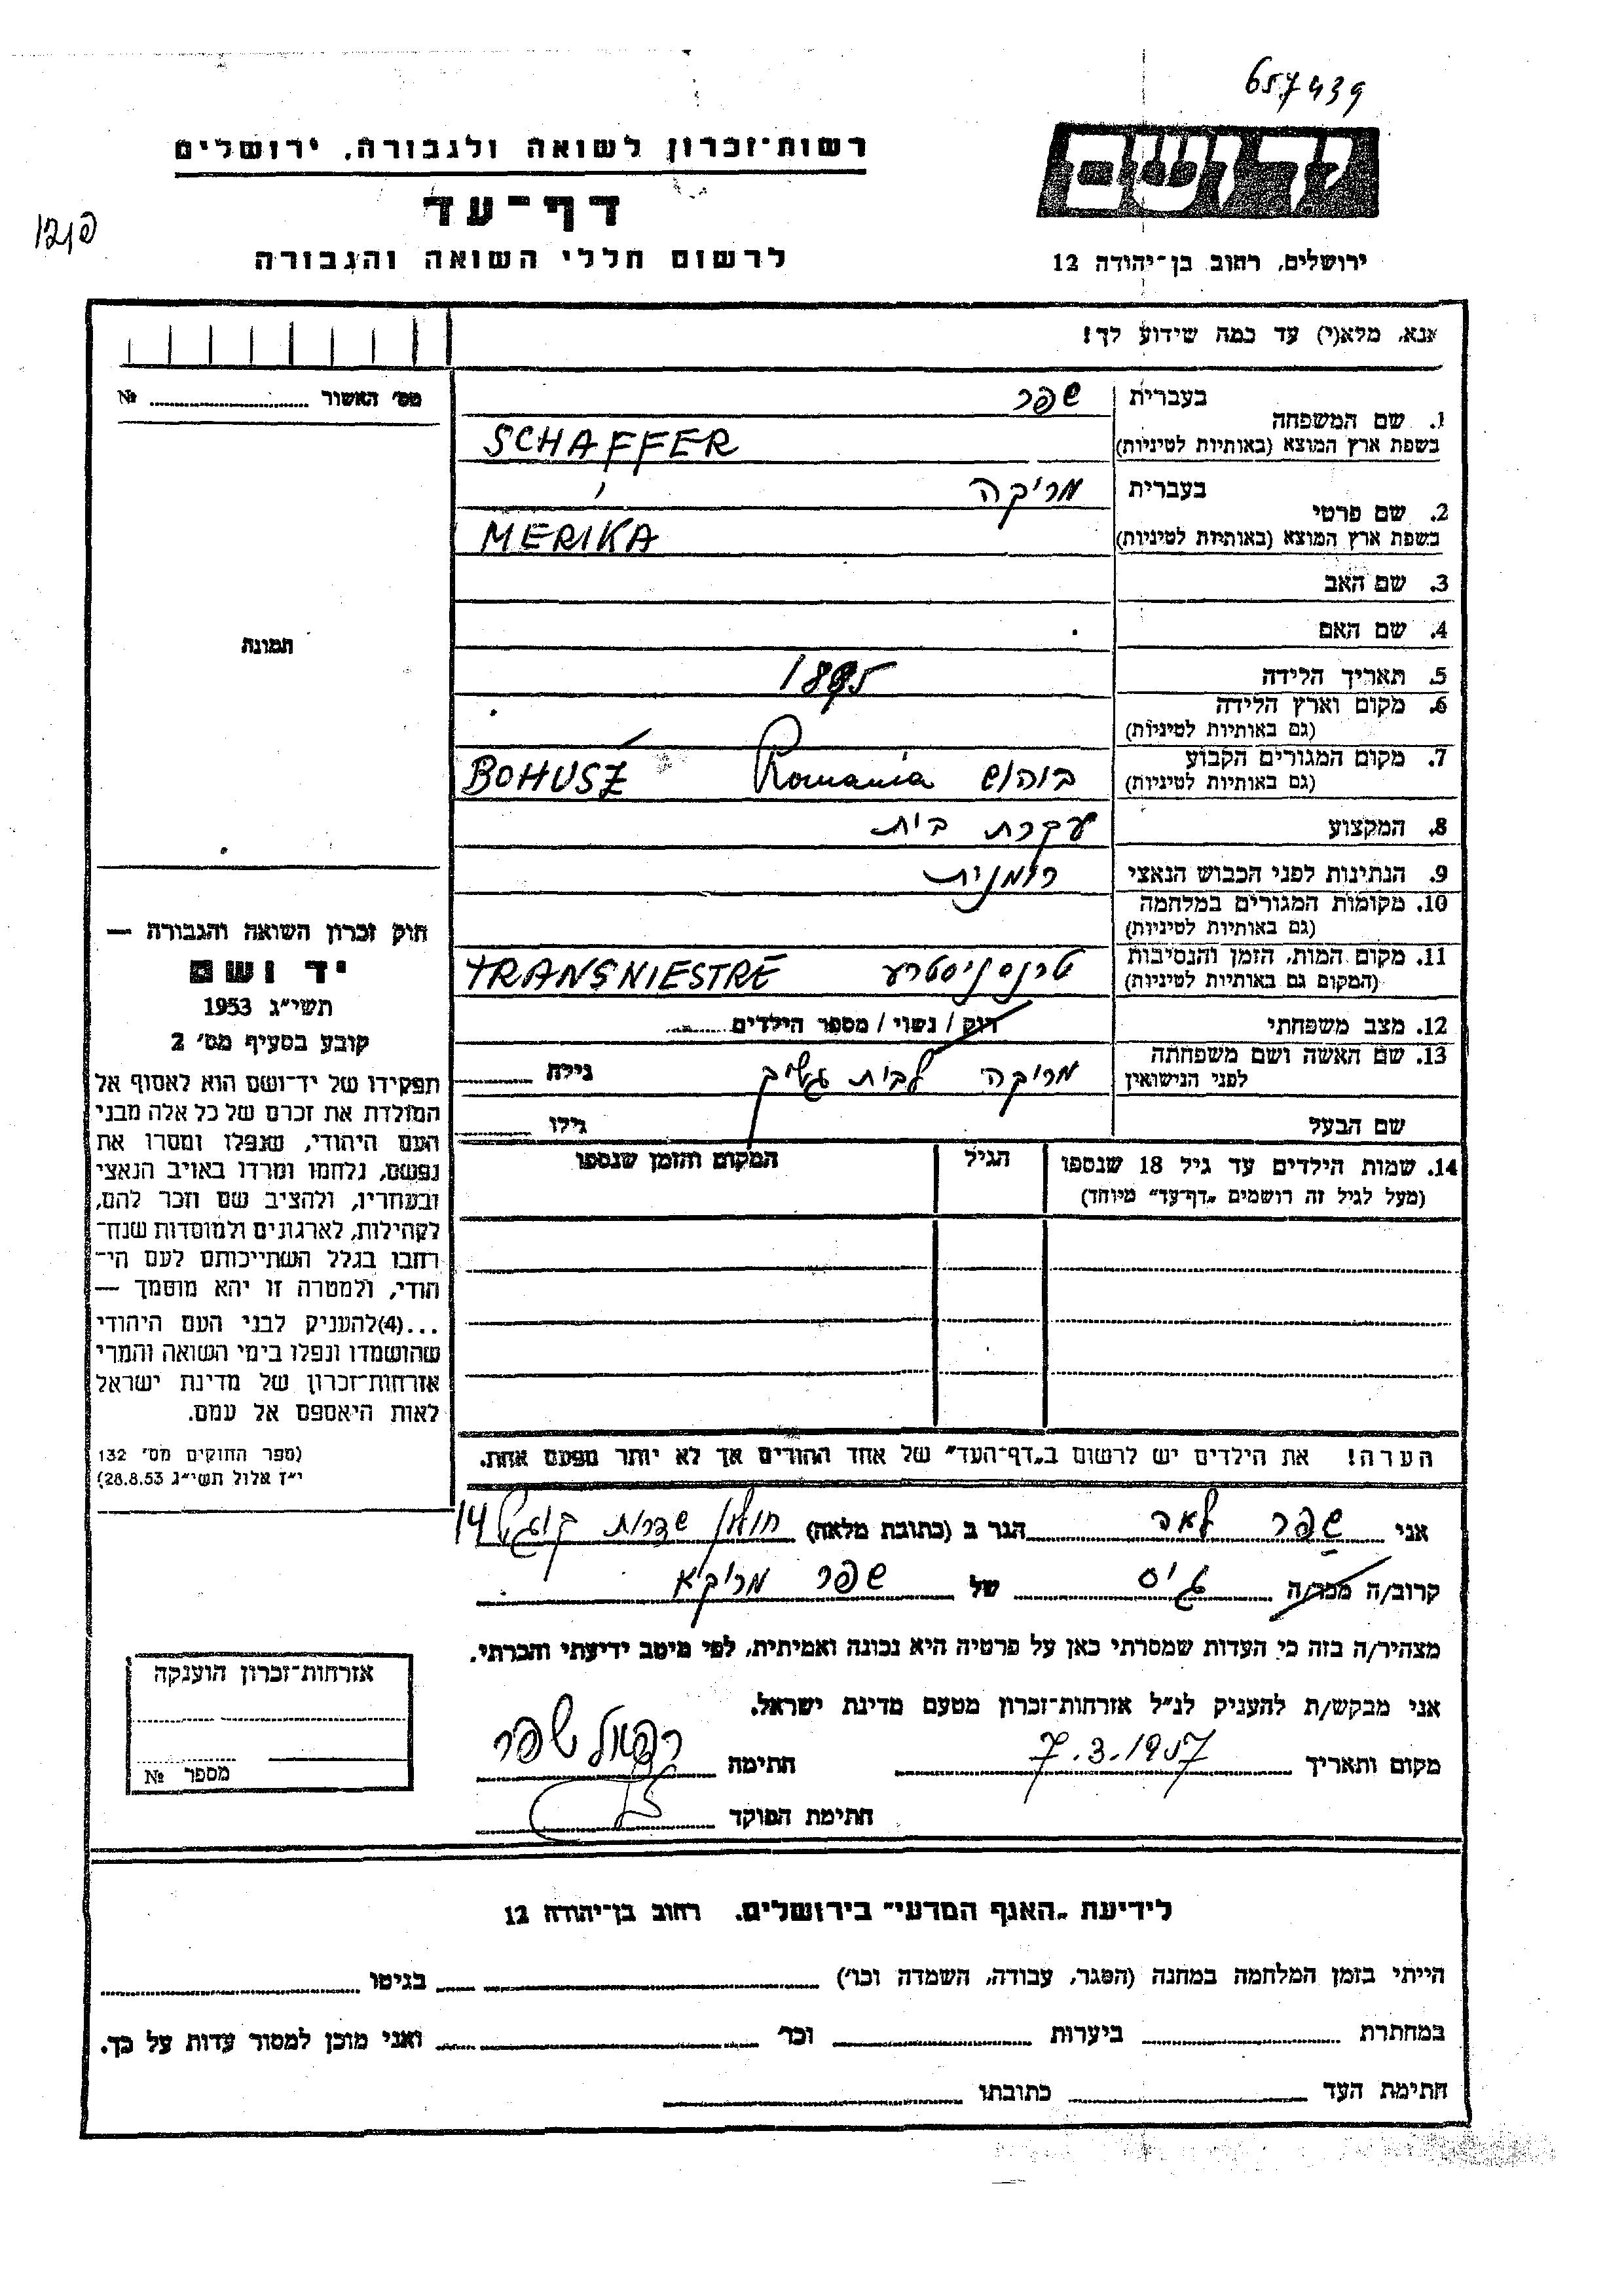 657439
רשות־זכרון לשואה ולגבורה, ירושלים
יד ושם
דף־עד
לרשום חללי השואה והגבורה
ירושלים, רחוב בן־יהודה 12
אנא, מלא(י) עד כמה שידוע לך!
מס' האשור № 
1. שם המשפחה
בעברית שפר
בשפת ארץ המוצא (באותיות לטיניות) SCHAFFER
2. שם פרטי
בעברית מריקה
בשפת ארץ המוצא (באותיות לטיניות) MERIKA
3. שם האב
4. שם האם
תמונה
5. תאריך הלידה
6. מקום וארץ הלידה
(גם באותיות לטיניות)
7. מקום המגורים הקבוע
(גם באותיות לטיניות) בוהוש Romania BOHUSZ
8. המקצוע עקרת בית
9. הנתינות לפני הכבוש הנאצי רומנית
10. מקומות המגורים במלחמה
(גם באותיות לטיניות)
11. מקום המות, הזמן והנסיבות
(המקום גם באותיות לטיניות) טרנסניסטרע TRANSNIESTRE
12. מצב משפחתי רוק / נשוי / מספר הילדים
13. שם האשה ושם משפחתה
לפני הנישואין מריקה לבית גילה
שם הבעל גילו
14. שמות הילדים עד גיל 18 שנספו הגיל המקום והזמן שנספו
(מעל לגיל זה רושמים „דף־עד" מיוחד)
חוק זכרון השואה והגבורה —
יד ושם
תשי"ג 1953
קובע בסעיף מס' 2
תפקידו של יד־ושם הוא לאסוף אל
המולדת את זכרם של כל אלה מבני
העם היהודי, שנפלו ומסרו את
נפשם, נלחמו ומרדו באויב הנאצי
ובעוזריו, ולהציב שם וזכר להם,
לקהילות, לארגונים ולמוסדות שנח־
רחבו בגלל השתייכותם לעם הי־
הודי, ולמטרה זו יהא מוסמך —
...(4)להעניק לבני העם היהודי
שהושמדו ונפלו בימי השואה והמרי
אזרחות־זכרון של מדינת ישראל
לאות היאספם אל עמם.
(ספר החוקים מס' 132
י"ז אלול תשי"ג 28.8.53)
הערה! את הילדים יש לרשום ב„דף־העד" של אחד ההורים אך לא יותר מפעם אחת.
אני שפר לאה הגר ב (כתובת מלאה) חולון שדרות קוגל 14
קרוב/ה מכר/ה גיס של שפר מריקא
מצהיר/ה בזה כי העדות שמסרתי כאן על פרטיה היא נכונה ואמיתית, לפי מיטב ידיעתי והכרתי.
אני מבקש/ת להעניק לנ"ל אזרחות־זכרון מטעם מדינת ישראל.
מקום ותאריך 7.3.1957 חתימה רפאל שפר
חתימת הפוקד
אזרחות־זכרון הוענקה
מספר №
לידיעת „האגף המדעי" בירושלים. רחוב בן־יהודה 12
הייתי בזמן המלחמה במחנה (הסגר, עבודה, השמדה וכו') בגיטו
במחתרת ביערות וכו' ואני מוכן למסור עדות על כך.
חתימת העד כתובתו